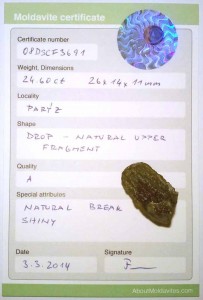 Moldavite certificate
Certificate number
08DSCF3691
Weight, Dimensions
24.60ct 26 x 14 x 11 mm
Locality
PARÝZ
Shape
DROP - NATURAL UPPER
FRAGMENT
Quality
A
Special attributes
NATURAL BREAK
SHINY
Date
Signature
3.3.2014
AboutMoldavites.com